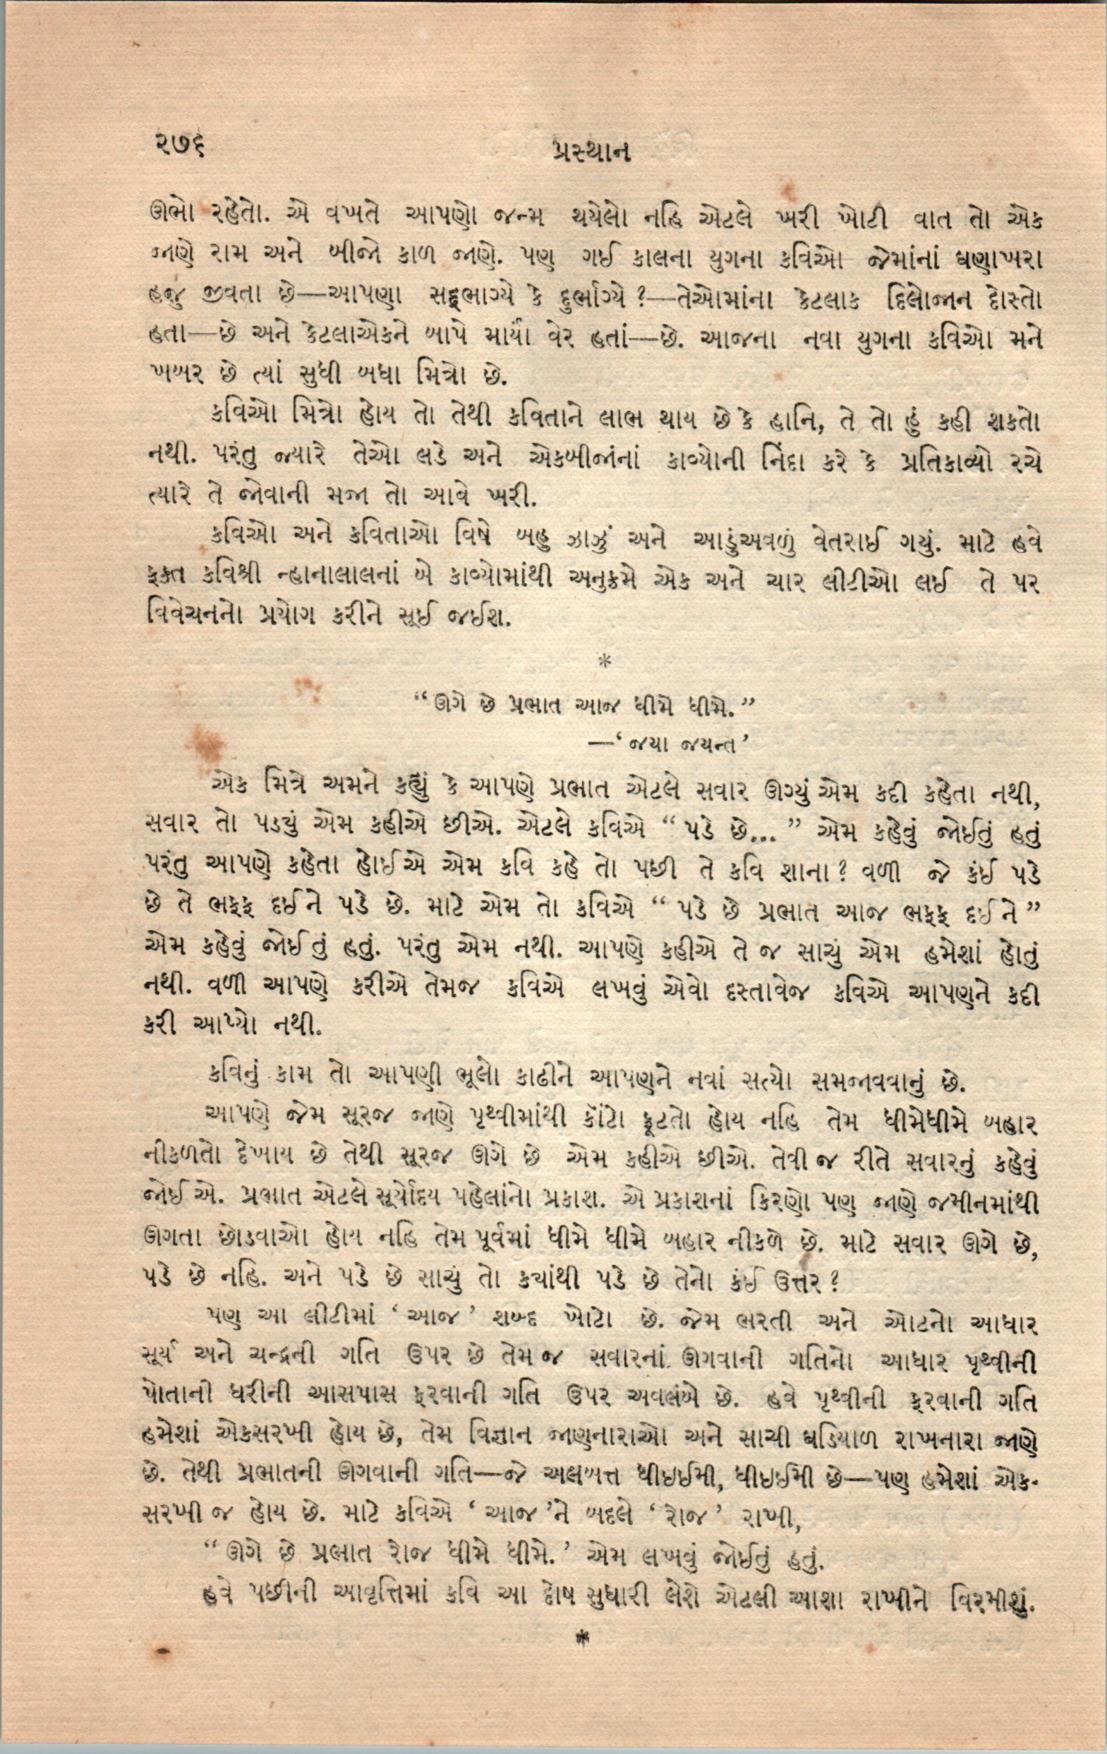 ૨૭૬
પ્રસ્થાન
ઊભો રહેતો. એ વખતે આપણો જન્મ થયેલો નહિ એટલે ખરી ખોટી વાત તો એક
જાણે રામ અને બીજો કાળ જાણે. પણ ગઈ કાલના યુગના કવિઓ જેમાંનાં ઘણાખરા
હજુ જીવતા છે—આપણા સદ્ભાગ્યે કે દુર્ભાગ્યે ?—તેઓમાંના કેટલાક દિલોજાન દોસ્તો
હતા—છે અને કેટલાએકને બાપે માર્યાં વેર હતાં—છે. આજના નવા યુગના કવિઓ મને
ખબર છે ત્યાં સુધી બધા મિત્રો છે.
કવિઓ મિત્રો હોય તો તેથી કવિતાને લાભ થાય છે કે હાનિ, તે તો હું કહી શકતો
નથી. પરંતુ જ્યારે તેઓ લડે અને એકબીજાંનાં કાવ્યોની નિંદા કરે કે પ્રતિકાવ્યો રચે
ત્યારે તે જોવાની મજા તો આવે ખરી.
કવિઓ અને કવિતાઓ વિષે બહુ ઝાઝું અને આડુંઅવળું વેતરાઈ ગયું. માટે હવે
ફક્ત કવિશ્રી ન્હાનાલાલનાં બે કાવ્યોમાંથી અનુક્રમે એક અને ચાર લીટીઓ લઈ તે પર
વિવેચનનો પ્રયોગ કરીને સૂઈ જઈશ.
*
“ઊગે છે પ્રભાત આજ ધીમે ધીમે.”
—‘જયા જયન્ત’
એક મિત્રે અમને કહ્યું કે આપણે પ્રભાત એટલે સવાર ઊગ્યું એમ કદી કહેતા નથી,
સવાર તો પડ્યું એમ કહીએ છીએ. એટલે કવિએ “ પડે છે... ” એમ કહેવું જોઈતું હતું
પરંતુ આપણે કહેતા હોઈએ એમ કવિ કહે તો પછી તે કવિ શાના ? વળી જે કંઈ પડે
છે તે ભફફ દઈને પડે છે. માટે એમ તો કવિએ “ પડે છે પ્રભાત આજ ભફફ દઈને ”
એમ કહેવું જોઈતું હતું. પરંતુ એમ નથી. આપણે કહીએ તે જ સાચું એમ હમેશાં હોતું
નથી. વળી આપણે કરીએ તેમજ કવિએ લખવું એવો દસ્તાવેજ કવિએ આપણને કદી
કરી આપ્યો નથી.
કવિનું કામ તો આપણી ભૂલો કાઢીને આપણને નવાં સત્યો સમજાવવાનું છે.
આપણે જેમ સૂરજ જાણે પૃથ્વીમાંથી કોંટો ફૂટતો હોય નહિ તેમ ધીમેધીમે બહાર
નીકળતો દેખાય છે તેથી સૂરજ ઊગે છે એમ કહીએ છીએ. તેવી જ રીતે સવારનું કહેવું
જોઈએ. પ્રભાત એટલે સૂર્યોદય પહેલાંનો પ્રકાશ. એ પ્રકાશનાં કિરણો પણ જાણે જમીનમાંથી
ઊગતા છોડવાઓ હોય નહિ તેમ પૂર્વમાં ધીમે ધીમે બહાર નીકળે છે. માટે સવાર ઊગે છે,
પડે છે નહિ. અને પડે છે સાચું તો ક્યાંથી પડે છે તેનો કંઈ ઉત્તર ?
પણ આ લીટીમાં ‘ આજ ’ શબ્દ ખોટો છે. જેમ ભરતી અને ઓટનો આધાર
સૂર્ય અને ચન્દ્રની ગતિ ઉપર છે તેમ જ સવારનાં ઊગવાની ગતિનો આધાર પૃથ્વીની
પોતાની ધરીની આસપાસ ફરવાની ગતિ ઉપર અવલંબે છે. હવે પૃથ્વીની ફરવાની ગતિ
હમેશાં એકસરખી હોય છે, તેમ વિજ્ઞાન જાણનારાઓ અને સાચી ઘડિયાળ રાખનારા જાણે
છે. તેથી પ્રભાતની ઊગવાની ગતિ—જે અલબત્ત ધીઇઇમી, ધીઇઇમી છે—પણ હમેશાં એક-
સરખી જ હોય છે. માટે કવિએ ‘ આજ ’ને બદલે ‘ રોજ ’ રાખી,
“ઊગે છે પ્રભાત રોજ ધીમે ધીમે.’ એમ લખવું જોઈતું હતું.
હવે પછીની આવૃત્તિમાં કવિ આ દોષ સુધારી લેશે એટલી આશા રાખીને વિરમીશું.
*